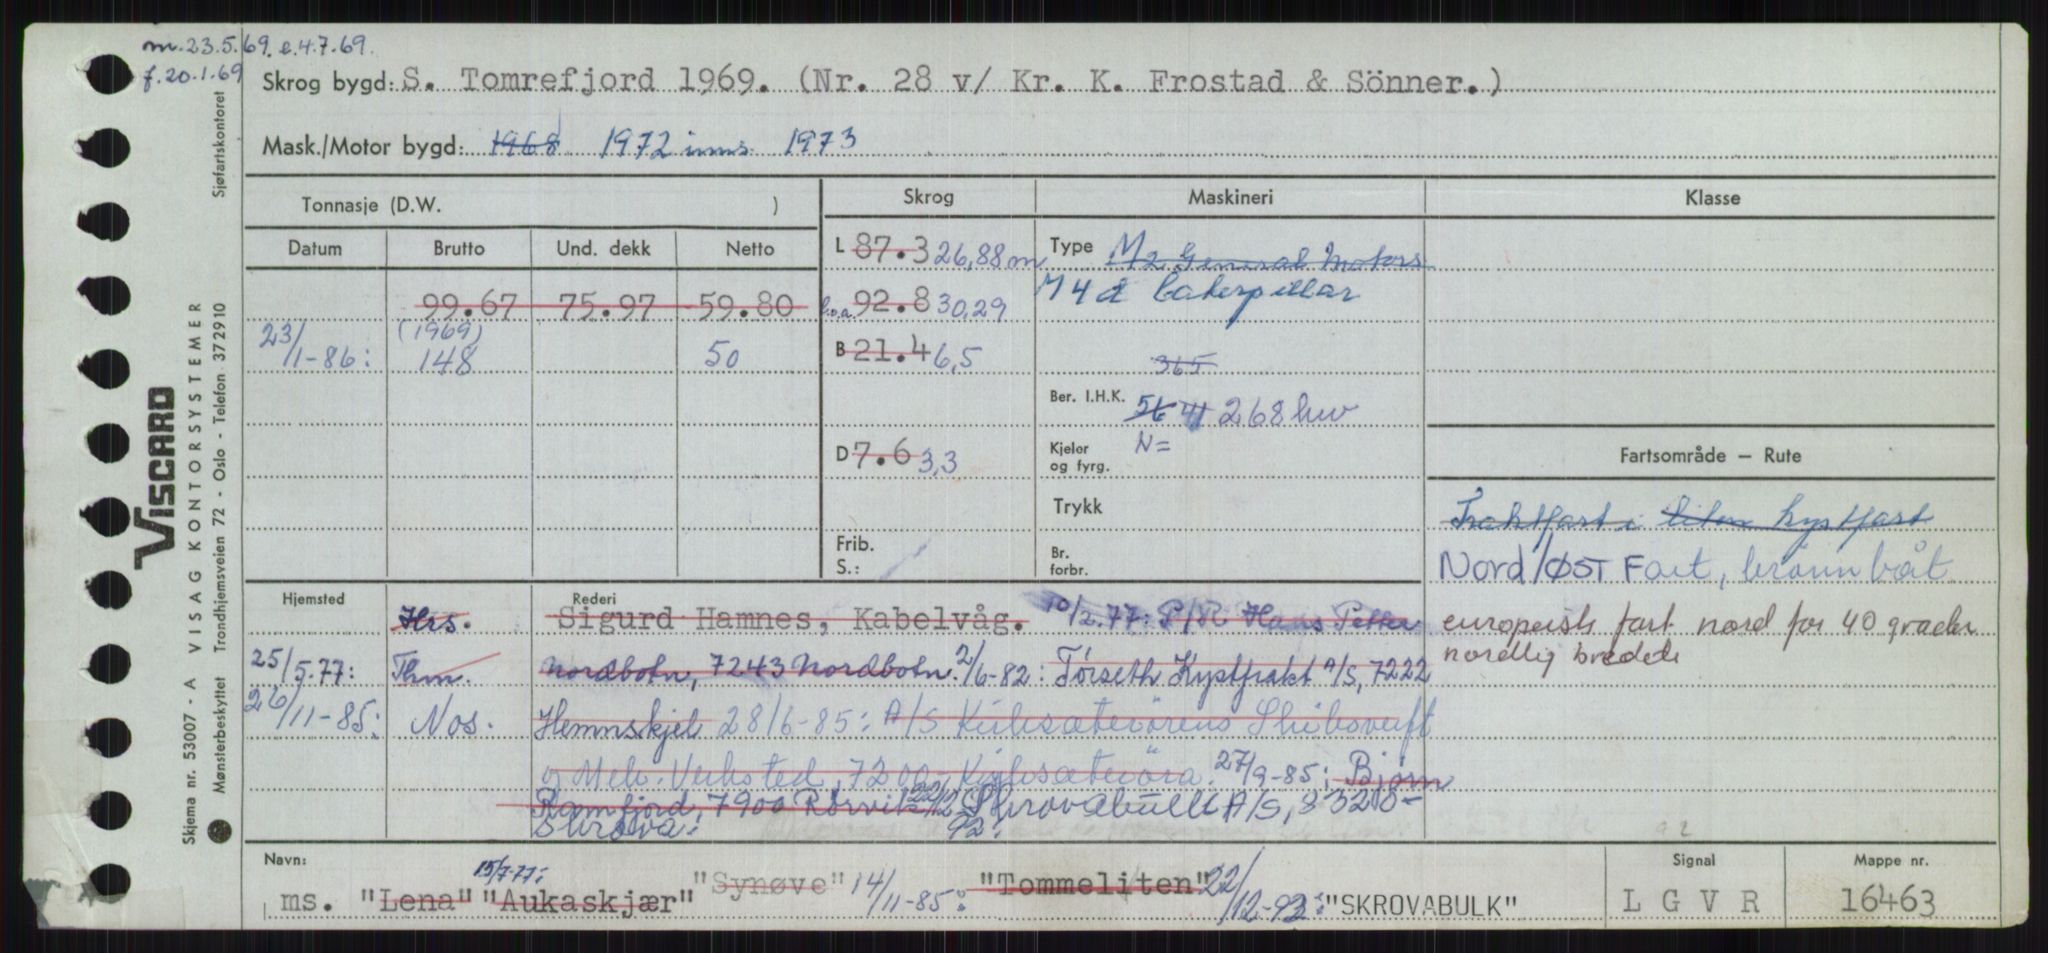 m. 23.5.69. e.4.7.69.
f. 20.1.69
Skrog bygd: S. Tomrefjord 1969. (Nr. 28 v/ Kr. K. Frostad & Sönner.)
Mask./Motor bygd: 1968 1972 inns. 1973
Tonnasje (D.W. )
Skrog Maskineri Klasse
Datum Brutto Und. dekk Netto
L 87.3 26,88 m Type M2 General Motors
99.67 75.97 59.80 l.o.a. 92.8 30,29 M 4 d Caterpillar
(1969)
23/1-86: 148 50 B 21.4 6,5 365
Ber. I.H.K. 56 41 268 kw
D 7.6 3,3 Kjeler og fyrg. N=
Fartsområde — Rute
Trykk Fraktfart i liten kystfart
Frib. S.: Br. forbr. Nord/ØST Fart, brønnbåt
europeisk fart nord for 40 grader
nordlig bredde
Hjemsted Rederi
Hrs. Sigurd Hamnes, Kabelvåg. 10/2.77: P/R Hans Petter
25/5.77: Thm. Nordbotn, 7243 Nordbotn. 2/6-82: Törseth Kystfrakt A/S, 7222
26/11-85: Nos. Hemnskjel 28/6-85: A/S Kirksæterörens Skibsverft
og Mek. Verksted, 7200- Kirksæteröra. 27/9-85: Bjørn
Ramfjord, 7900 Rørvik 22/12 92: Skrovabulk A/S, 8320-
Skrova:
Navn:
ms. "Lena" 15/7-77: "Aukaskjær" "Synøve" 14/11-85: "Tommeliten" 22/12-92: "SKROVABULK"
Signal
L G V R
Mappe nr.
16463
Skjema nr. 53007 - A VISAG KONTORSYSTEMER
Mønsterbeskyttet Trondhjemsveien 72 - Oslo - Telefon 372910 Sjøfartskontoret
VISCARD